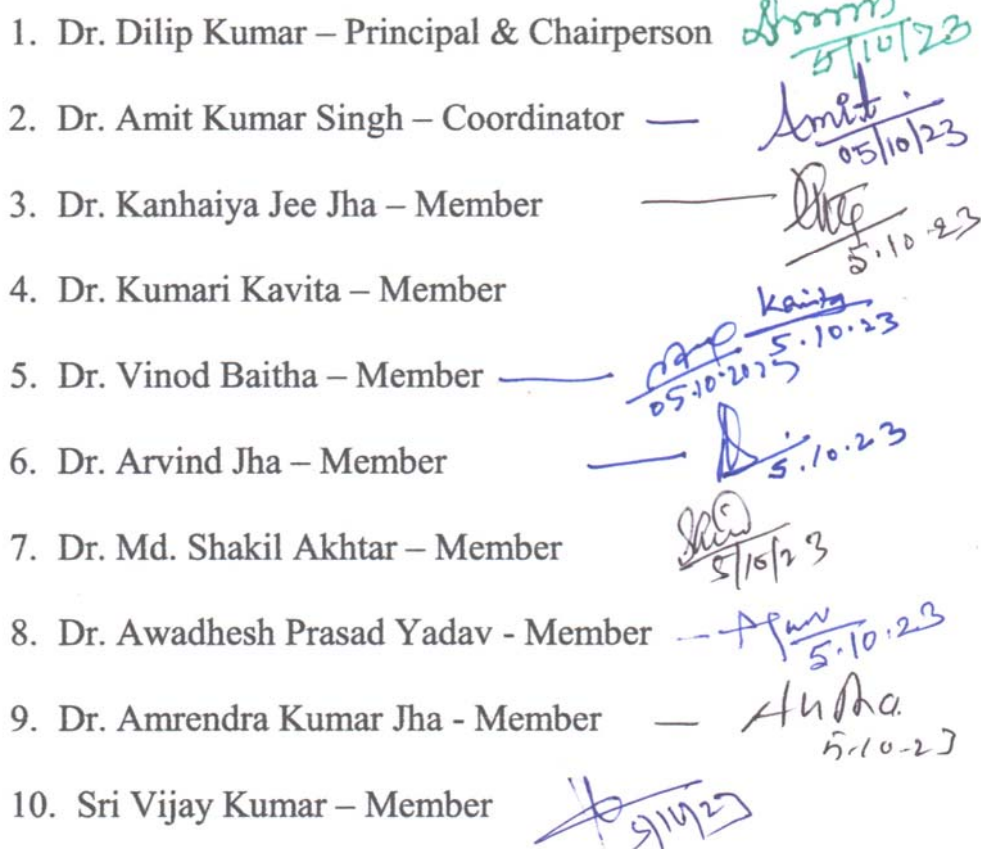 1. Dr. Dilip Kumar – Principal & Chairperson
5/10/23
2. Dr. Amit Kumar Singh – Coordinator — Amit.
05/10/23
3. Dr. Kanhaiya Jee Jha – Member
5.10.23
4. Dr. Kumari Kavita – Member Kavita
5.10.23
5. Dr. Vinod Baitha – Member
05.10.2023
6. Dr. Arvind Jha – Member
5.10.23
7. Dr. Md. Shakil Akhtar – Member
5/10/23
8. Dr. Awadhesh Prasad Yadav - Member
5.10.23
9. Dr. Amrendra Kumar Jha - Member
5-10-23
10. Sri Vijay Kumar – Member
5/10/23